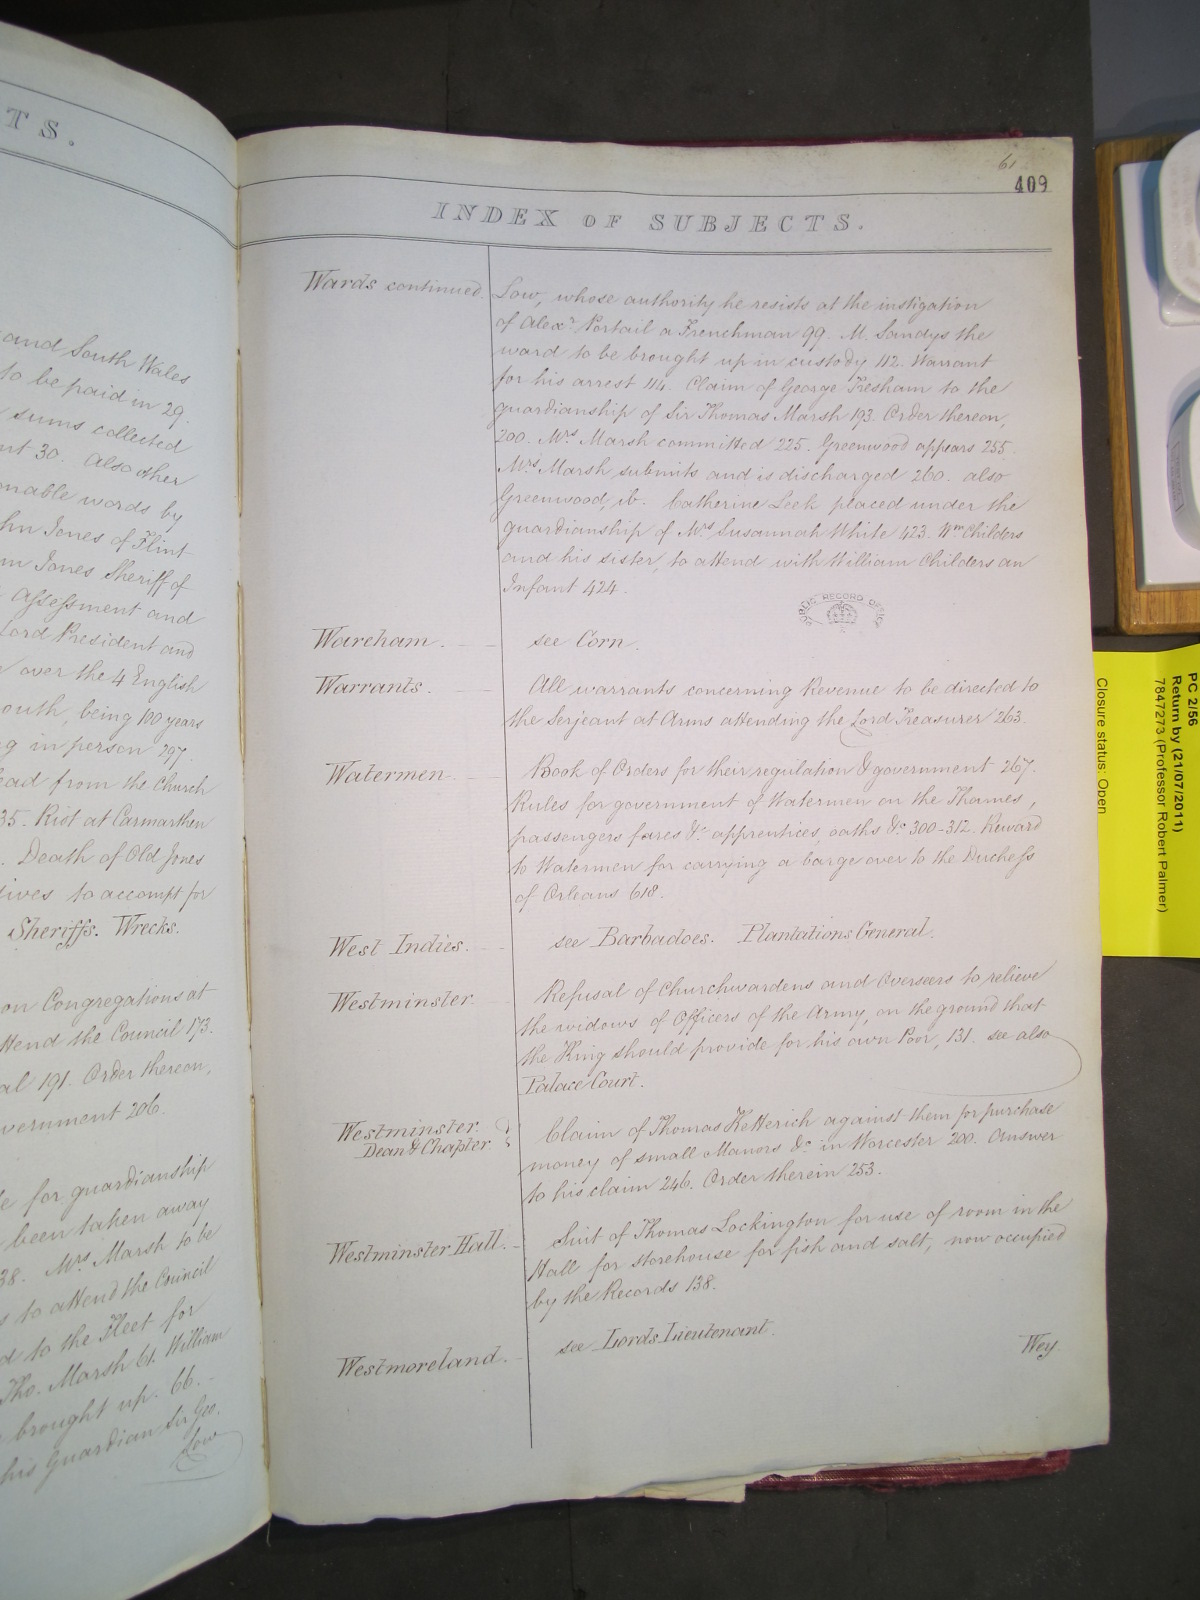 TS.
and South Wales
to be paid in 29.
sums collected
30. Also other
words by
Jones of Flint
Jones Sheriff of
Assessment and
Lord President and
over the 4 English
outh, being 100 years
in person 297.
ead from the Church
35. Riot at Carmarthen
. Death of Old Jones
tives to accompt for
Sheriffs. Wrecks.
on Congregations at
ttend the Council 173.
al 191. Order thereon,
vernment 206.
for guardianship
been taken away
38. Mrs. Marsh to be
to attend the Council
d to the Fleet for
Tho. Marsh 61. William
brought up. 66.
his Guardian Sir Geo.
Sow
61
409
INDEX OF SUBJECTS.
Wards continued.
Sow, whose authority he resists at the instigation
of Alexr. Portail a Frenchman 99. M. Sandys the
ward to be brought up in custody 112. Warrant
for his arrest 114. Claim of George Tresham to the
guardianship of Sir Thomas Marsh 193. Order thereon,
200. Mrs. Marsh committed 225. Greenwood appears 255.
Mrs. Marsh submits and is discharged 260. also
Greenwood, ib. Catherine Leek placed under the
guardianship of Mrs. Susannah White 423. Wm. Childers
and his sister, to attend with William Childers an
Infant 424.
PUBLIC RECORD OFFICE
Wareham.
see Corn.
Warrants.
All warrants concerning Revenue to be directed to
the Serjeant at Arms attending the Lord Treasurer 263.
Watermen
Book of Orders for their regulation & government 267.
Rules for government of Watermen on the Thames,
passengers fares &c. apprentices, oaths &c. 300-312. Reward
to Watermen for carrying a barge over to the Duchess
of Orleans 618.
West Indies.
see Barbadoes. Plantations General.
Westminster.
Refusal of Churchwardens and Overseers to relieve
the widows of Officers of the Army, on the ground that
the King should provide for his own Poor, 131. see also
Palace Court.
Westminster
Dean & Chapter
Claim of Thomas Ketterich against them for purchase
money of small Manors &c. in Worcester 200. Answer
to his claim 246. Order therein 253.
Westminster Hall.
Suit of Thomas Lockington for use of room in the
Hall for storehouse for fish and salt, now occupied
by the Records 138.
Westmoreland.
see Lords Lieutenant.
Wey.
PC 2/56
Return by (21/07/2011)
7847273 (Professor Robert Palmer)
Closure status: Open